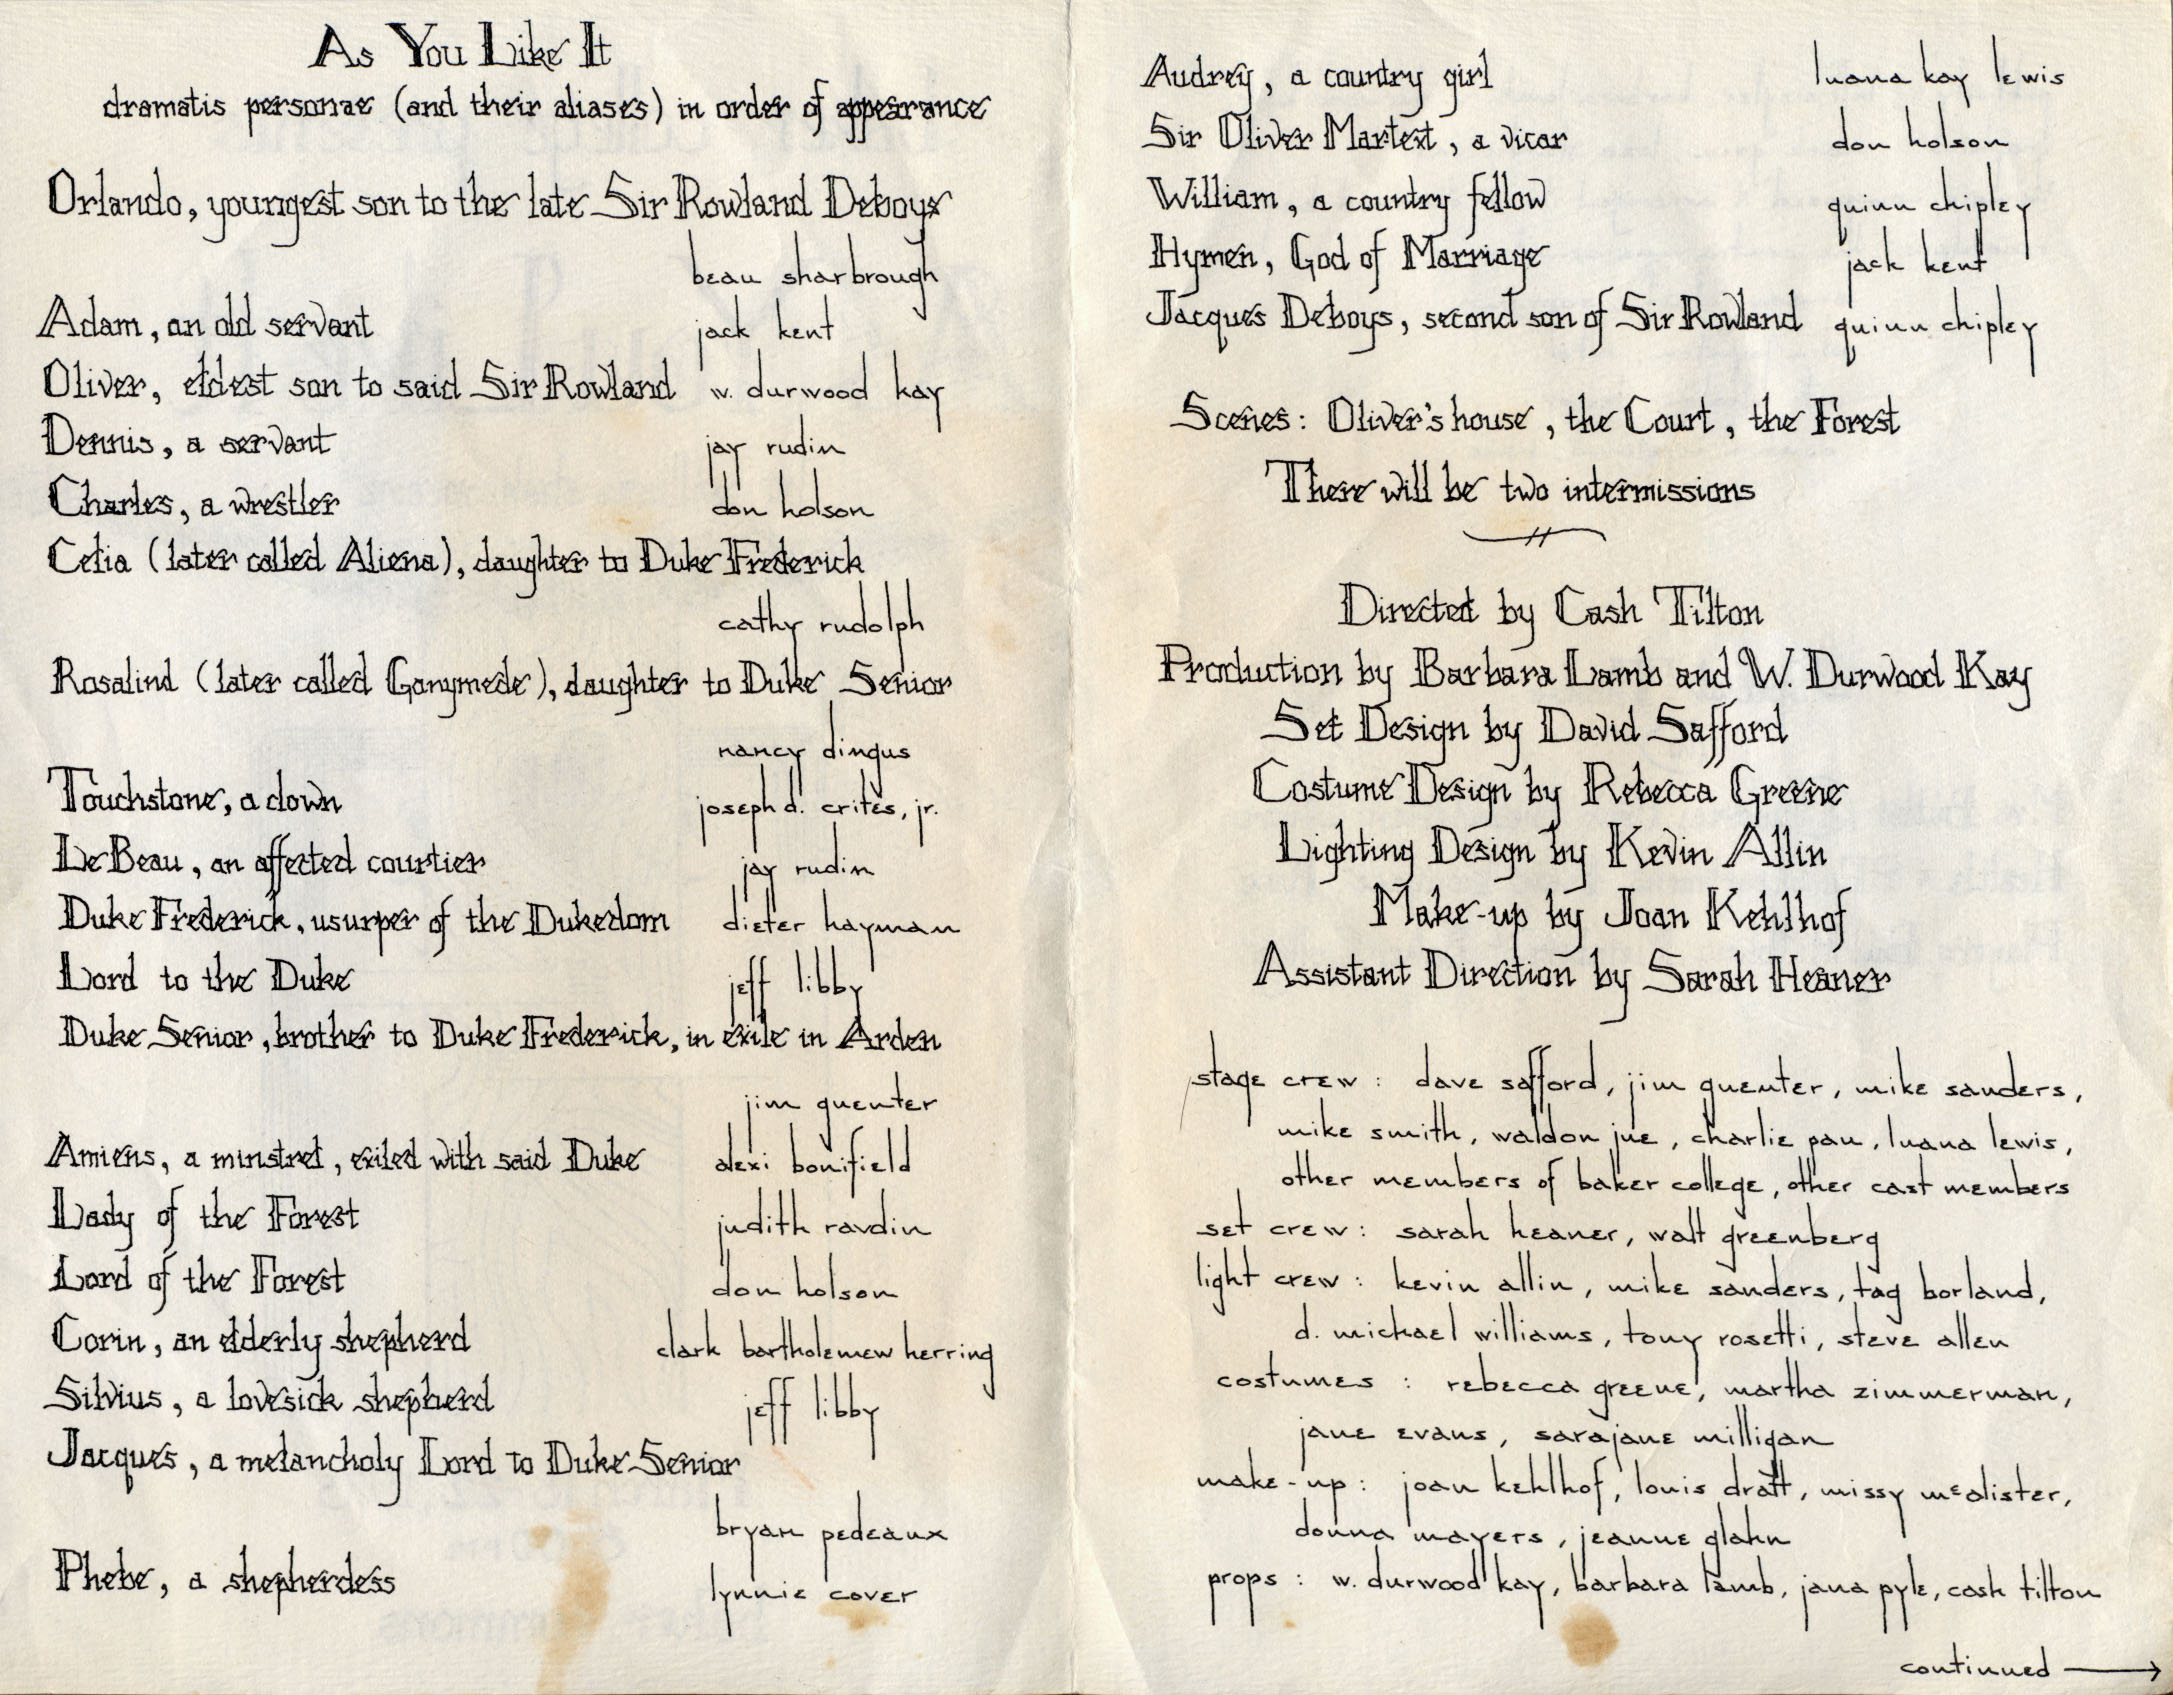 As You Like It
dramatis personae (and their aliases) in order of appearance
Orlando, youngest son to the late Sir Rowland Deboys
beau sharbrough
Adam, an old servant jack kent
Oliver, eldest son to said Sir Rowland w. durwood kay
Dennis, a servant jay rudin
Charles, a wrestler don holson
Celia (later called Aliena), daughter to Duke Frederick
cathy rudolph
Rosalind (later called Ganymede), daughter to Duke Senior
nancy dingus
Touchstone, a clown joseph d. crites, jr.
Le Beau, an affected courtier jay rudin
Duke Frederick, usurper of the Dukedom dieter hayman
Lord to the Duke jeff libby
Duke Senior, brother to Duke Frederick, in exile in Arden
jim quenter
Amiens, a minstrel, exiled with said Duke alexi bonifield
Lady of the Forest judith ravdin
Lord of the Forest don holson
Corin, an elderly shepherd clark bartholemew herring
Silvius, a lovesick shepherd jeff libby
Jacques, a melancholy Lord to Duke Senior
bryan pedeaux
Phebe, a shepherdess lynnie cover
Audrey, a country girl luana kay lewis
Sir Oliver Martext, a vicar don holson
William, a country fellow quinn chipley
Hymen, God of Marriage jack kent
Jacques Deboys, second son of Sir Rowland quinn chipley
Scenes: Oliver's house, the Court, the Forest
There will be two intermissions
Directed by Cash Tilton
Production by Barbara Lamb and W. Durwood Kay
Set Design by David Safford
Costume Design by Rebecca Greene
Lighting Design by Kevin Allin
Make-up by Joan Kehlhof
Assistant Direction by Sarah Heaner
stage crew: dave safford, jim quenter, mike sanders,
mike smith, waldon jue, charlie pau, luana lewis,
other members of baker college, other cast members
set crew: sarah heaner, walt greenberg
light crew: kevin allin, mike sanders, tag borland,
d. michael williams, tony rosetti, steve allen
costumes: rebecca greene, martha zimmerman,
jane evans, sarajane milligan
make-up: joan kehlhof, louis dratt, missy mcalister,
donna mayers, jeanne glahn
props: w. durwood kay, barbara lamb, jana pyle, cash tilton
continued →